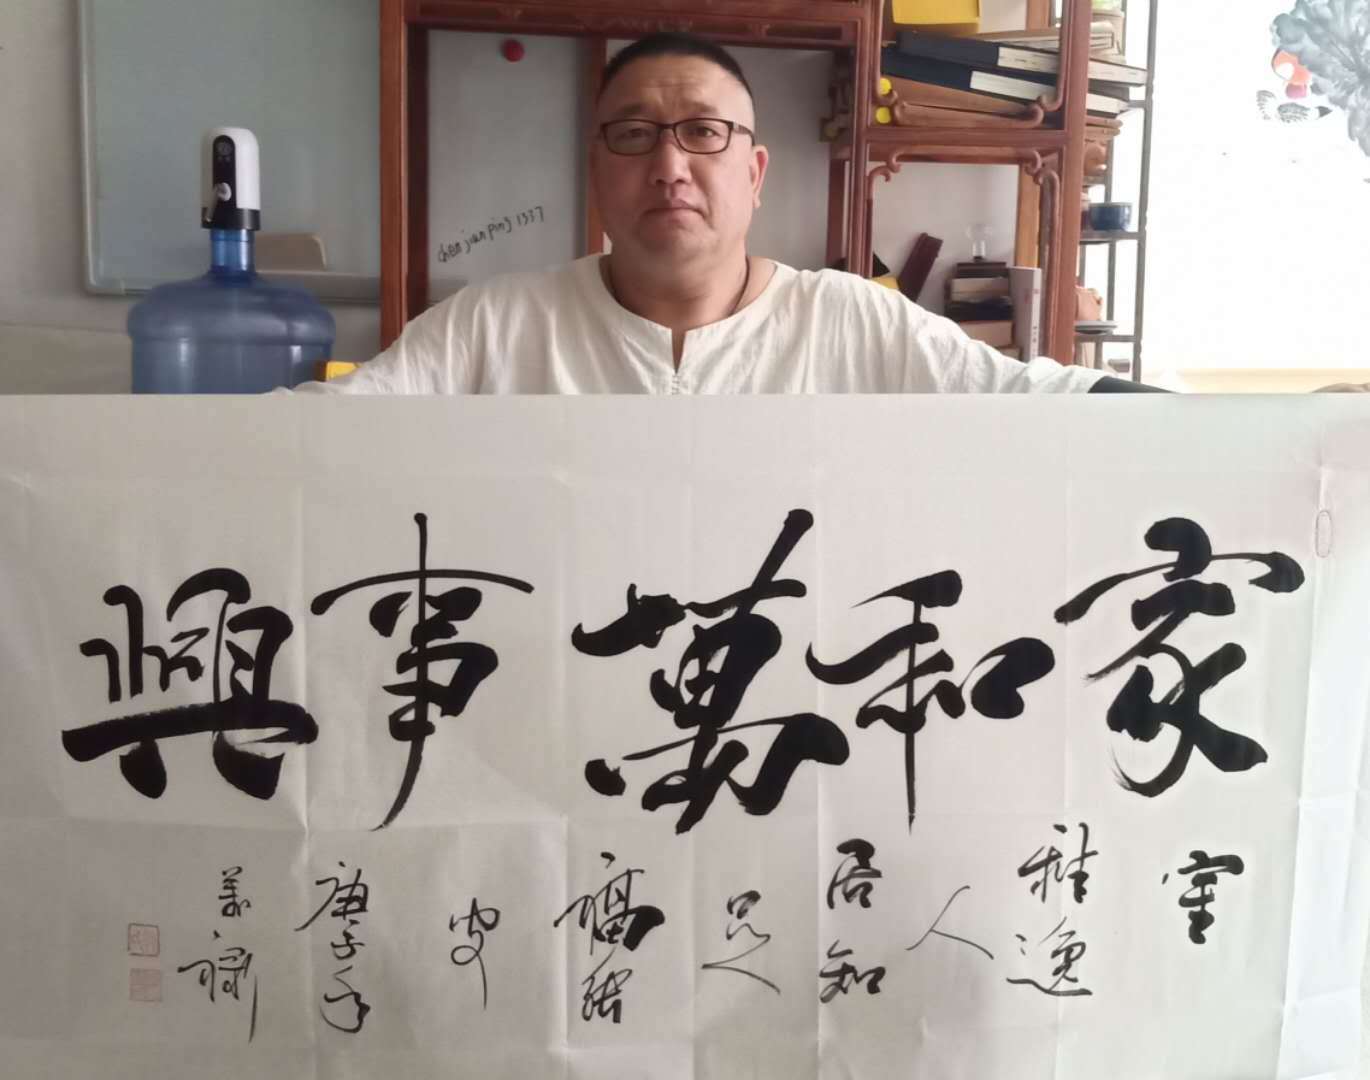 chenjianping1337
家和萬事興
室
雅逸
人
居知
足
福能
安
庚子年